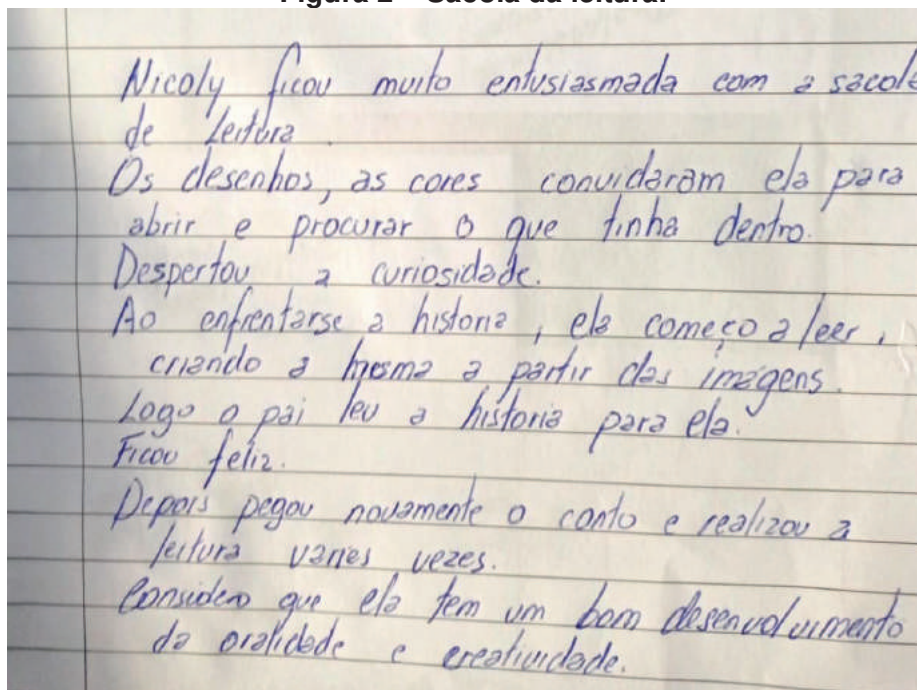 Figura 2 – Sacola da leitura.
Nicoly ficou muito entusiasmada com a sacola
de Leitura.
Os desenhos, as cores convidaram ela para
abrir e procurar o que tinha dentro.
Despertou a curiosidade.
Ao enfrentarse a historia, ela começo a leer,
criando a mesma a partir das imágens.
Logo o pai leu a historia para ela.
Ficou feliz.
Depois pegou novamente o conto e realizou a
leitura varies vezes.
Considero que ela tem um bom desenvolvimento
da oralidade e creatividade.